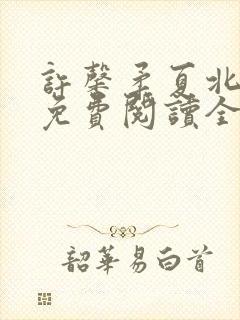 許馨矛夏北
免費閱讀全
韶華易白首